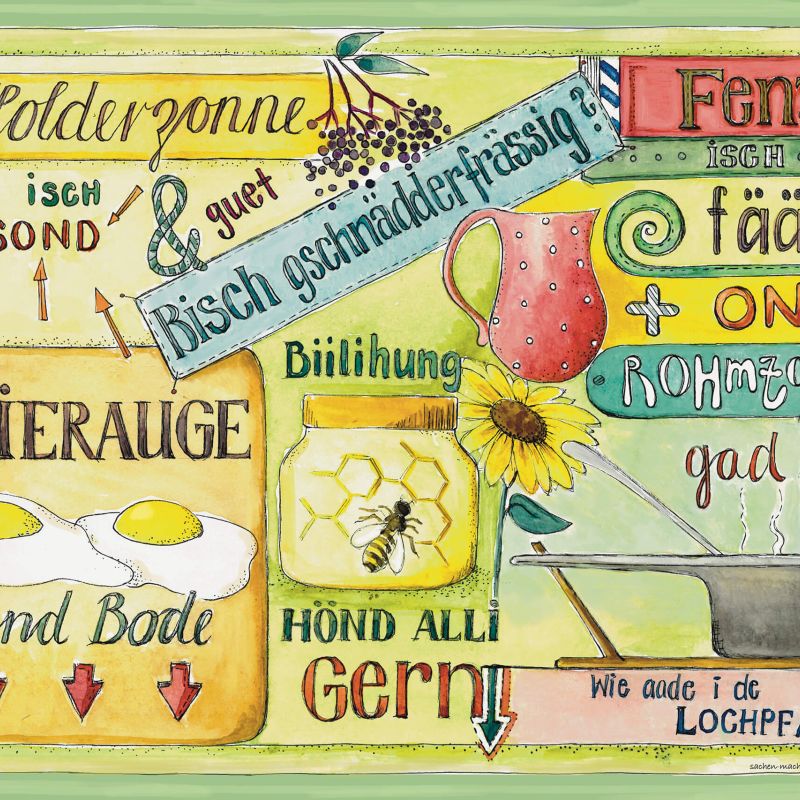 Holderzonne
isch
SOND
& guet
Bisch gschnädderfrässig?
FENZ
ISCH
fää
+ ON
ROHMZO
gad
Biilihung
IERAUGE
nd Bode
HÖND ALLI
Gern
Wie aade i de
LOCHPFA
sachen-mach